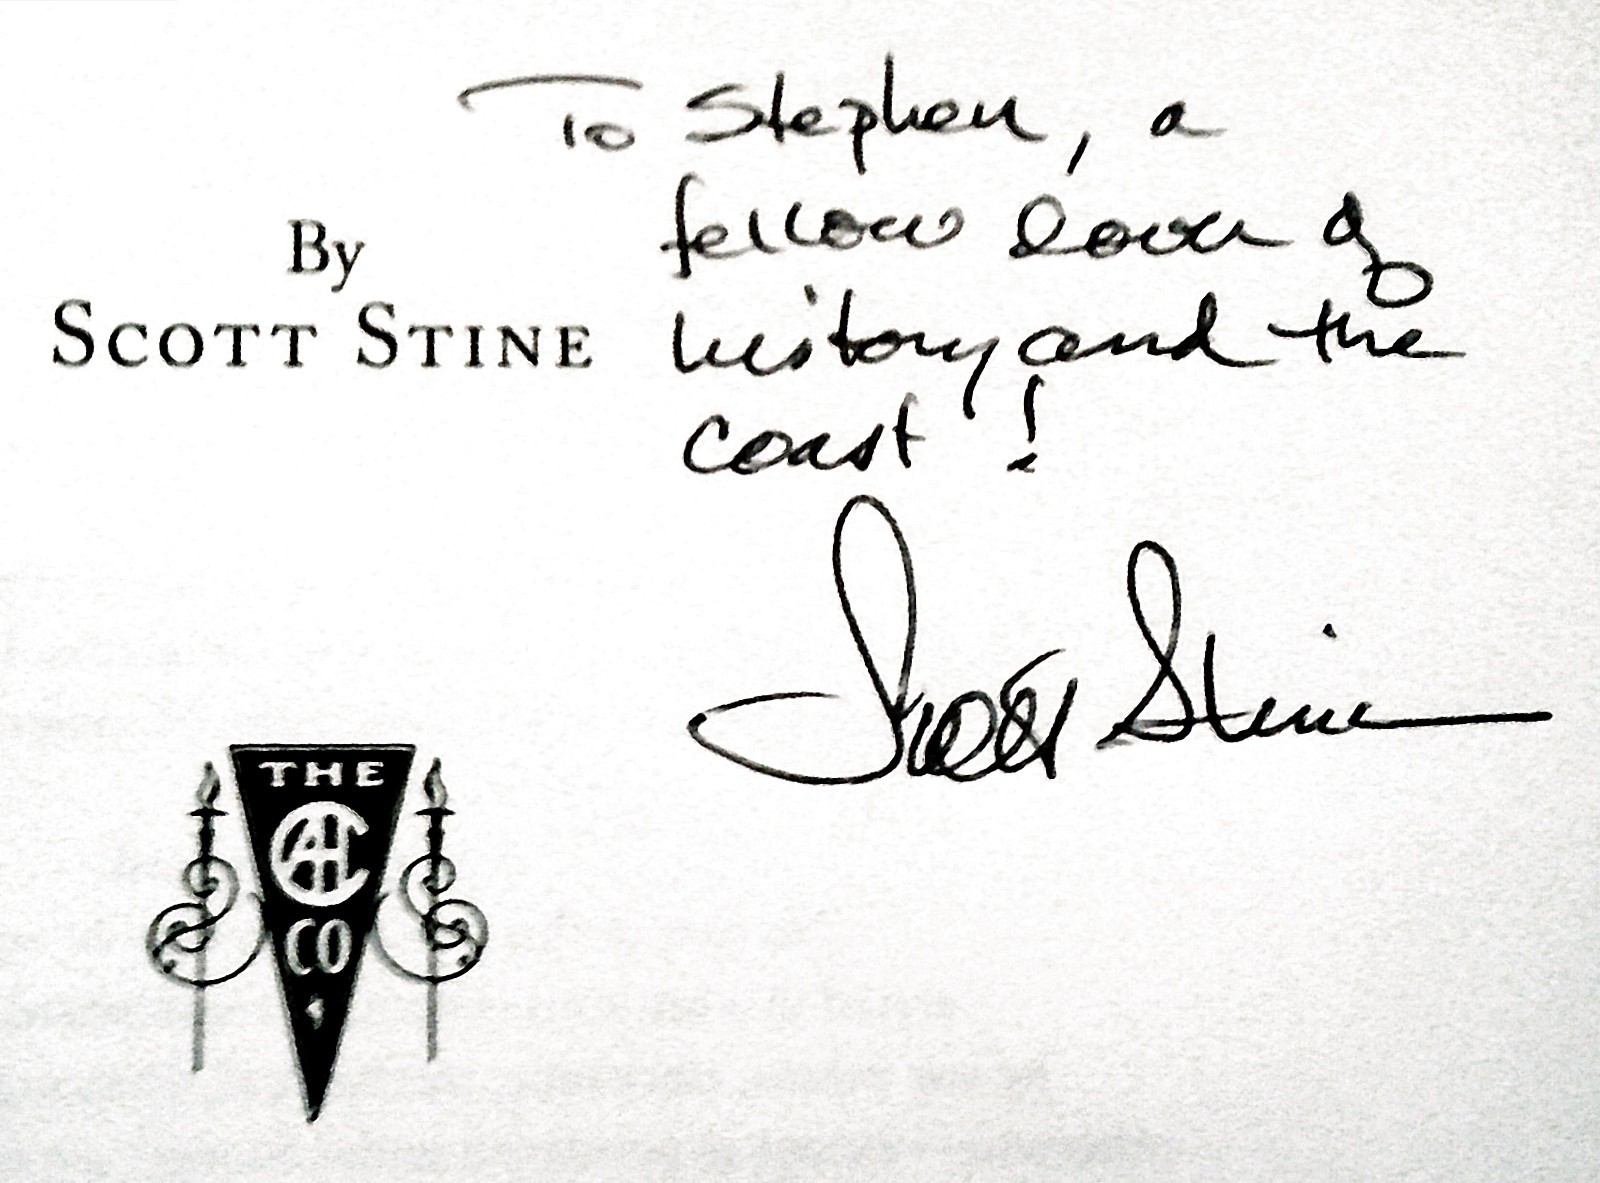 To Stephen, a
fellow lover of
history and the
coast!
Scott Stine
By
SCOTT STINE
THE
AHC
CO